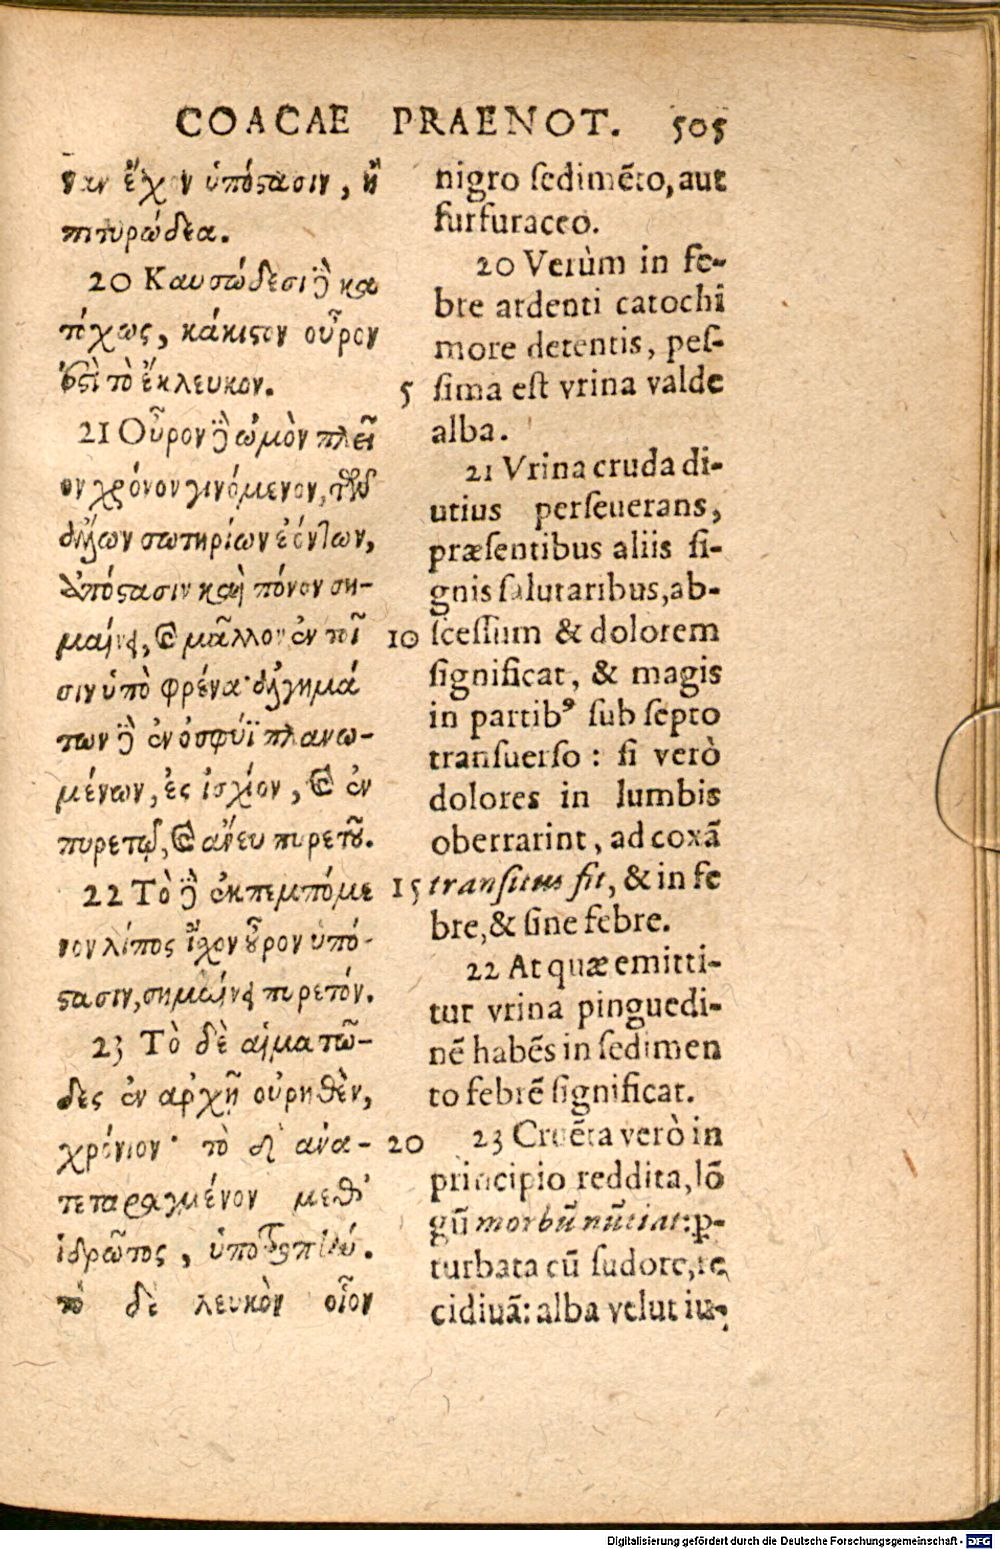 COACAE PRAENOT. 505
ναν ἔχον ὑπόστασιν, ἢ
πιτυρώδεα.
20 Καυσώδεσι δὲ κα
τόχως, κάκιστον οὖρον
ἐστὶ τὸ ἔκλευκον.
21 Οὖρον δὲ ὠμὸν πλεῖ
ον χρόνον γινόμενον, τῶν δ
ἄλλων σωτηρίων ἐόντων,
ἀπόστασιν καὶ πόνον ση-
μαίνει, καὶ μᾶλλον ἐν τοῖ
σιν ὑπὸ φρένα· ἀλγημά
των δὲ ἐν ὀσφύϊ πλανω-
μένων, ἐς ἰσχίον, καὶ ἐν
πυρετῷ, καὶ ἄνευ πυρετοῦ.
22 Τὸ δὲ ἐκπεμπόμε
νον λίπος ἴχον οὖρον ὑπό-
στασιν, σημαίνει πυρετόν.
23 Τὸ δὲ αἱματῶ-
δες ἐν ἀρχῇ οὐρηθὲν,
χρόνιον· τὸ δ' ἀνα-
τεταραγμένον μεθ'
ἱδρῶτος,
τὸ δὲ λευκὸν οἷον
nigro sedimẽto, aut
furfuraceo.
20 Verùm in fe-
bre ardenti catochi
more detentis, pes-
5 sima est vrina valde
alba.
21 Vrina cruda di-
utius perseuerans,
præsentibus aliis si-
gnis salutaribus, ab-
10 scessum & dolorem
significat, & magis
in partibꝰ sub septo
transuerso: si verò
dolores in lumbis
oberrarint, ad coxã
15 transitus fit, & in fe
bre, & sine febre.
22 At quæ emitti-
tur vrina pinguedi-
nẽ habẽs in sedimen
to febrẽ significat.
20 23 Cruẽta verò in
principio reddita, lõ
gũ morbũ nũtiat: ꝑ-
turbata cũ sudore, re
cidiuã: alba velut iu-
Digitalisierung gefördert durch die Deutsche Forschungsgemeinschaft - DFG